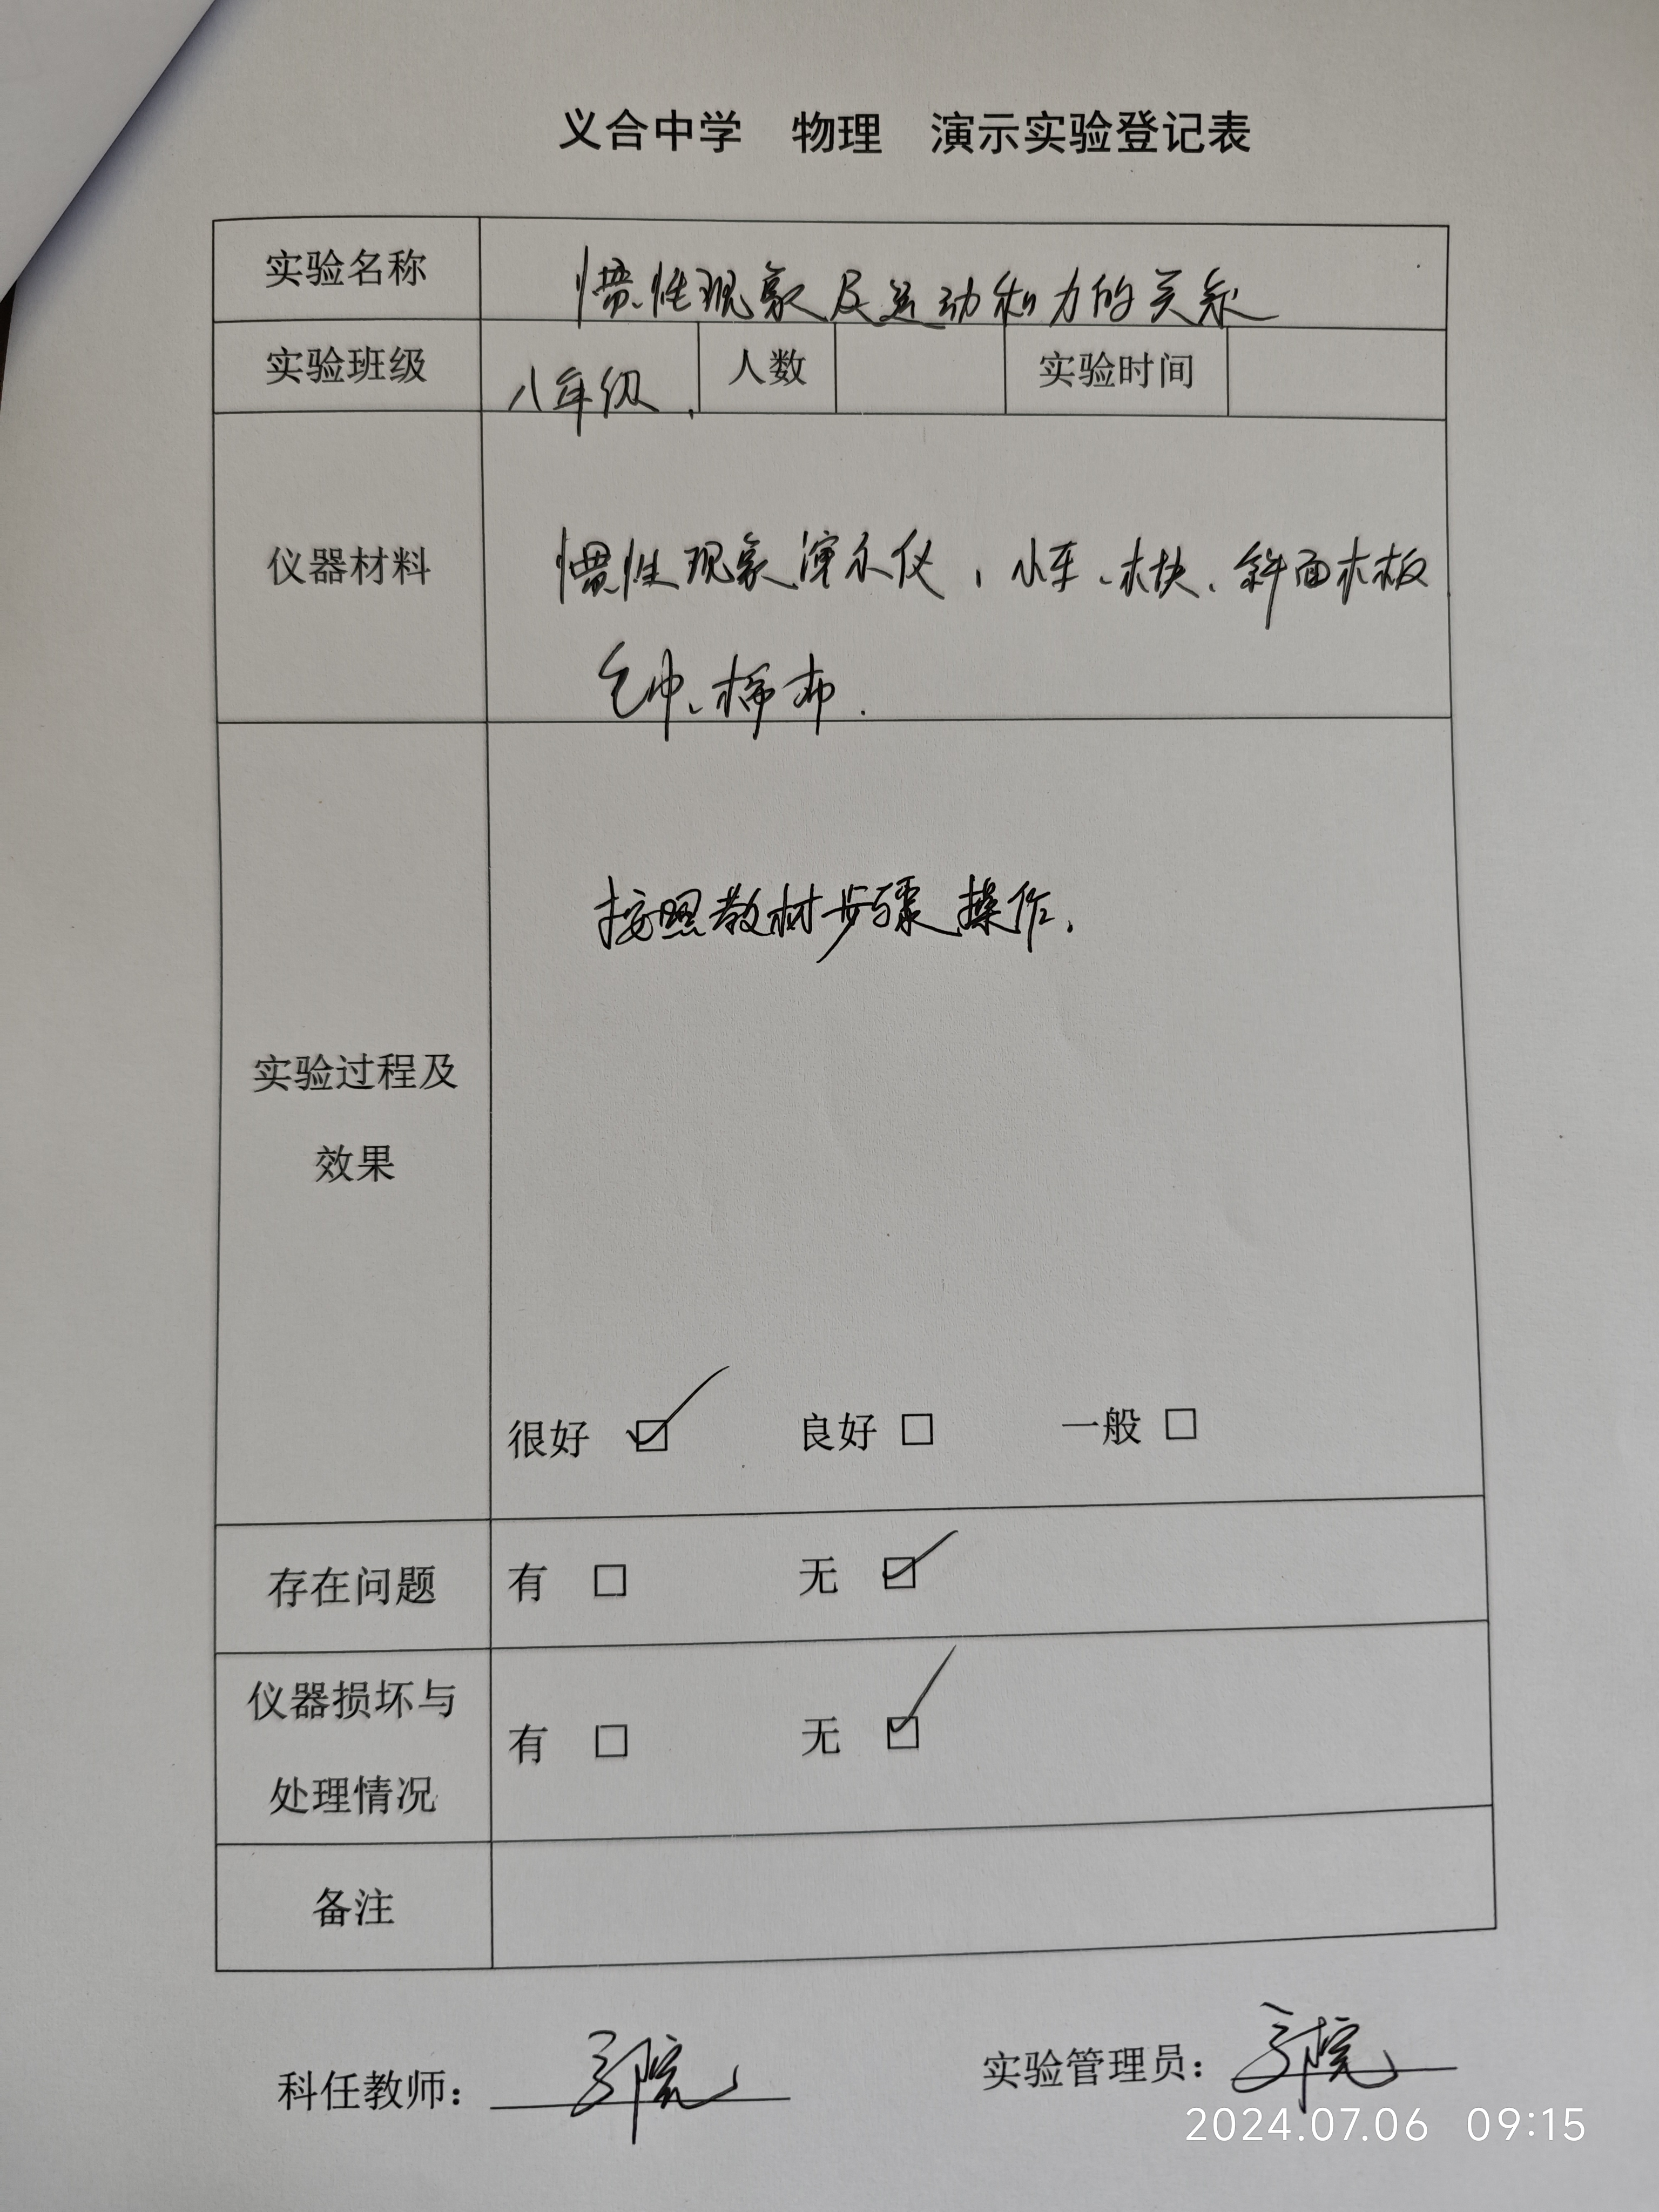 义合中学 物理 演示实验登记表
实验名称 惯性现象及运动和力的关系
实验班级 八年级. 人数 实验时间
仪器材料 惯性现象演示仪、小车、木块、斜面木板
毛巾、棉布.
按照教材步骤操作.
实验过程及
效果
很好 ☑ 良好 □ 一般 □
存在问题 有 □ 无 ☑
仪器损坏与
有 □ 无 ☑
处理情况
备注
科任教师： 实验管理员：
2024.07.06 09:15